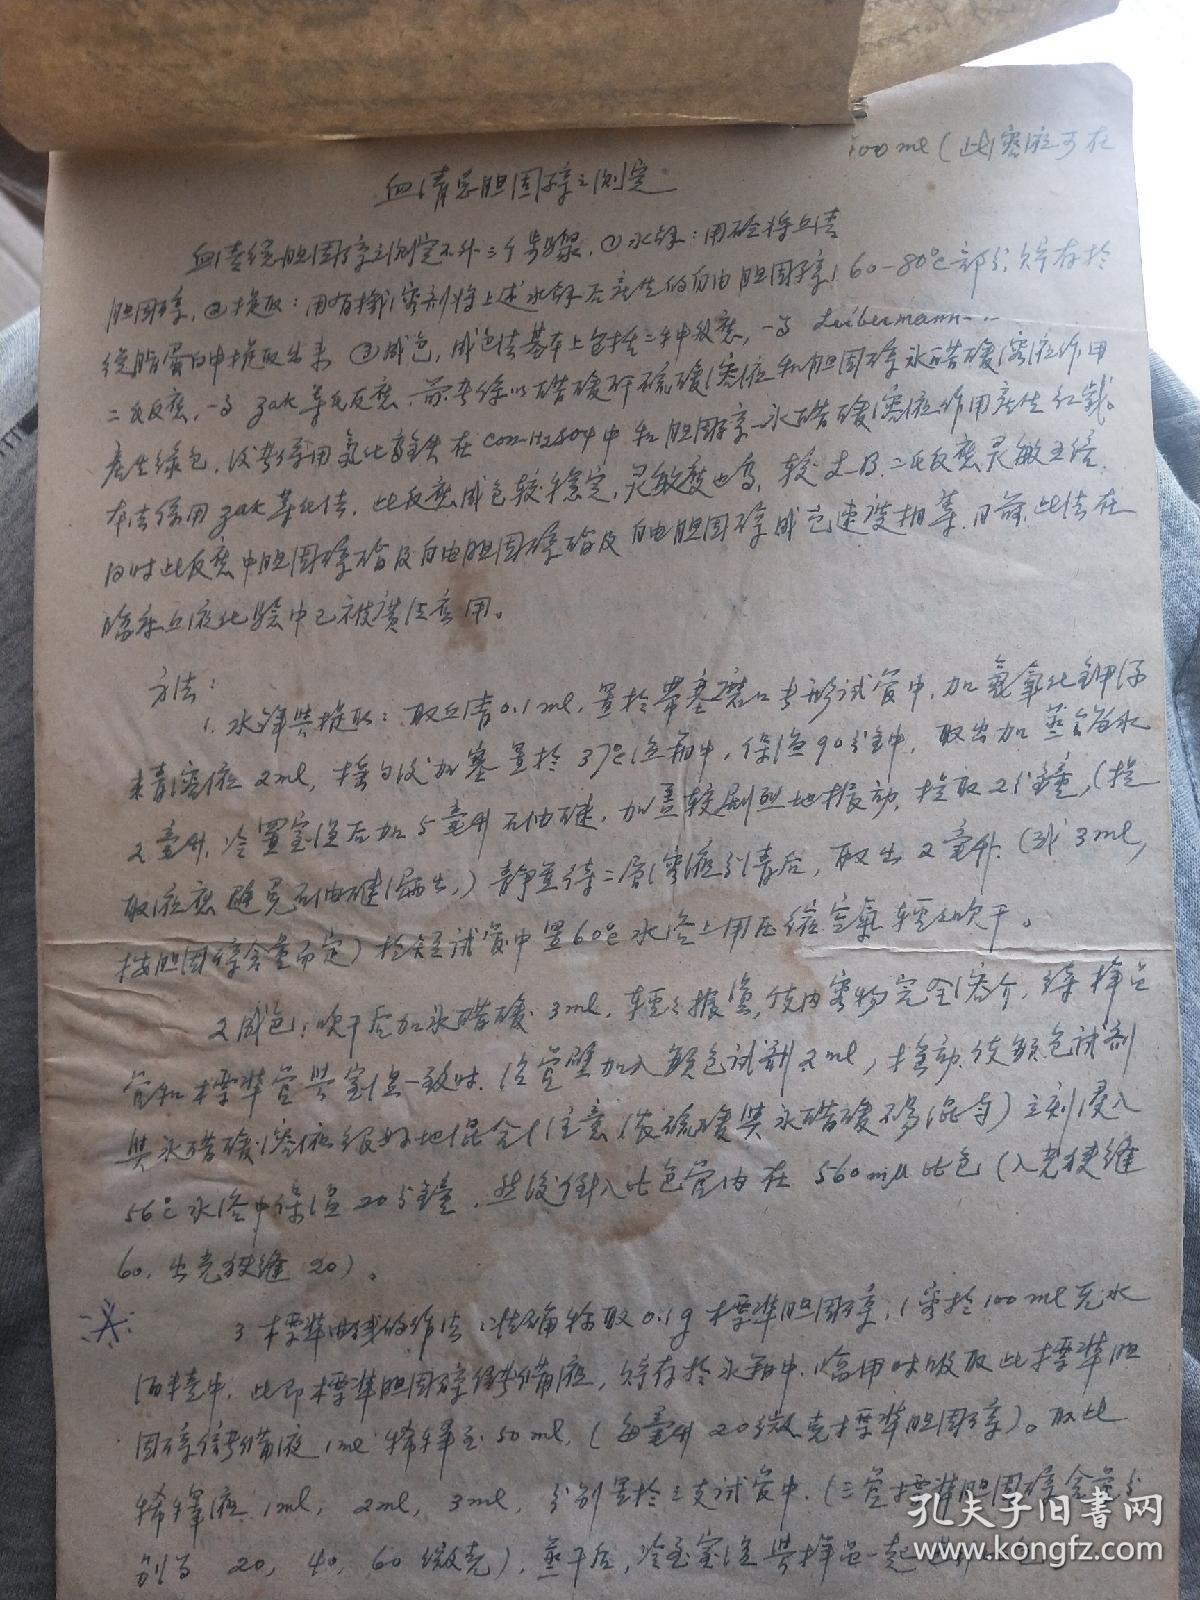 100 ml (此溶液可在
血清总胆固醇之测定
血清总胆固醇之测定不外三个步骤. ①水解: 用硷将血清
胆固醇. ②提取: 用有机溶剂将上述水解后产生的自由胆固醇 60-80℃部分, 贮存於
从脂蛋白中提取出来 ③成色, 成色法基本上包括二种反应, 一为 Leibermann-
二氏反应, 一为 Zak 等氏反应. 前者系以醋酸酐硫酸溶液和胆固醇冰醋酸溶液作用
产生绿色, 后者系用氯化高铁在 con-H₂SO₄ 中和胆固醇-冰醋酸溶液作用产生红紫.
本法系用 Zak 等氏法, 此反应成色较稳定, 灵敏度也高, 较 二氏反应灵敏五倍.
同时此反应中胆固醇酯及自由胆固醇酯及自由胆固醇成色速度相等. 目前此法在
临床血液化验中已被广泛应用.
方法:
1. 水解与提取: 取血清 0.1 ml, 置於带塞磨口 形试管中, 加氢氧化钾
酒精溶液 2 ml, 摇匀后加塞置於 37℃温箱中, 保温 90 分钟, 取出加蒸馏水
2 毫升, 冷置室温后加 5 毫升石油醚, 加盖较剧烈地振动, 提取 2 分钟, (提
取液应避免石油醚漏出,) 静置待二层溶液分清后, 取出 2 毫升. (或 3 ml,
按胆固醇含量而定) 於 试管中置 60℃ 水浴上用压缩空气轻轻吹干.
2. 成色: 吹干后加冰醋酸 3 ml, 轻轻振盪, 使内容物完全溶介, 待样品
管和标準管与室温一致时. 沿管壁加入显色试剂 2 ml, 摇动. 使显色试剂
与冰醋酸溶液很好地混合 (注意浓硫酸与冰醋酸不易混匀) 立刻浸入
56℃水浴中保温 20 分钟, 然后倒入比色管内在 560 mμ 比色 (入光狭缝
60, 出光狭缝 20).
3. 标準曲线的作法: 准确称取 0.1 g 标準胆固醇, 溶於 100 ml 无水
酒精中, 此即标準胆固醇储备液, 贮存於冰箱中. 临用时吸取此标準胆
固醇储备液 1 ml 稀释至 50 ml, (每毫升 20 微克标準胆固醇). 取此
稀释液 1 ml, 2 ml, 3 ml, 分别置於三支试管中. (三管标準胆固醇含量分
别为 20, 40, 60 微克), 蒸干后, 冷至室温与样品一起
孔夫子旧书网
www.kongfz.com